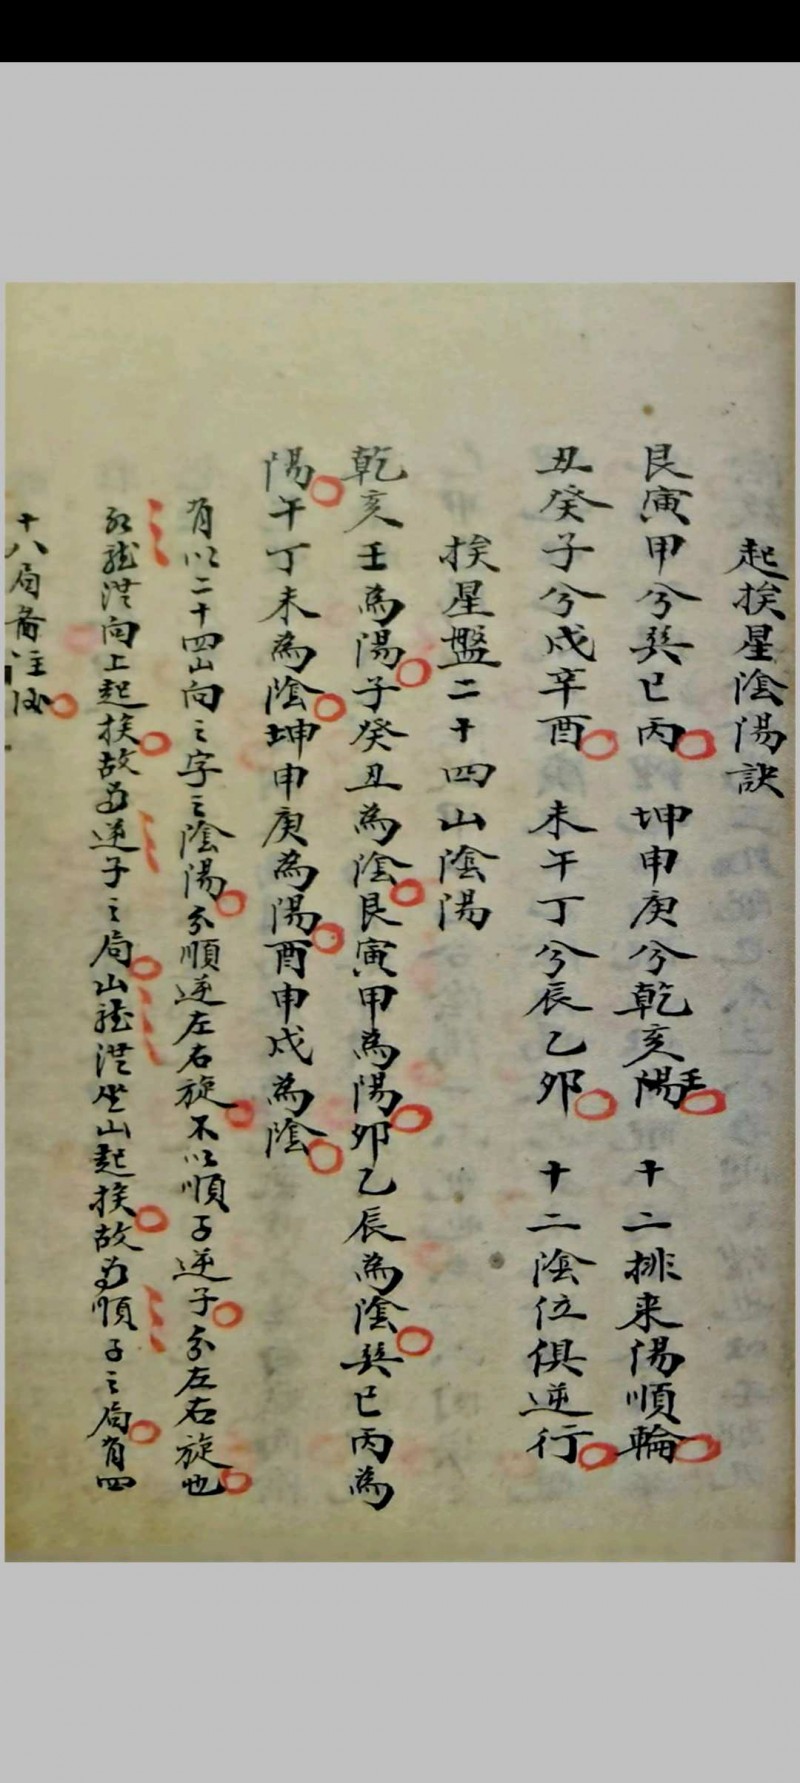 起挨星陰陽訣
艮寅甲兮巽巳丙 坤申庚兮乾亥壬陽 十二排来陽順輪
丑癸子兮戌辛酉 未午丁兮辰乙卯 十二陰位俱逆行
挨星盤二十四山陰陽
乾亥壬為陽子癸丑為陰艮寅甲為陽卯乙辰為陰巽巳丙為
陽午丁未為陰坤申庚為陽酉申戌為陰
有以二十四山向之字之陰陽分順逆左右旋不以順子逆子分左右旋也
向上起挨故為逆子之局山龍從坐山起挨故為順子之局有四
十八局备注